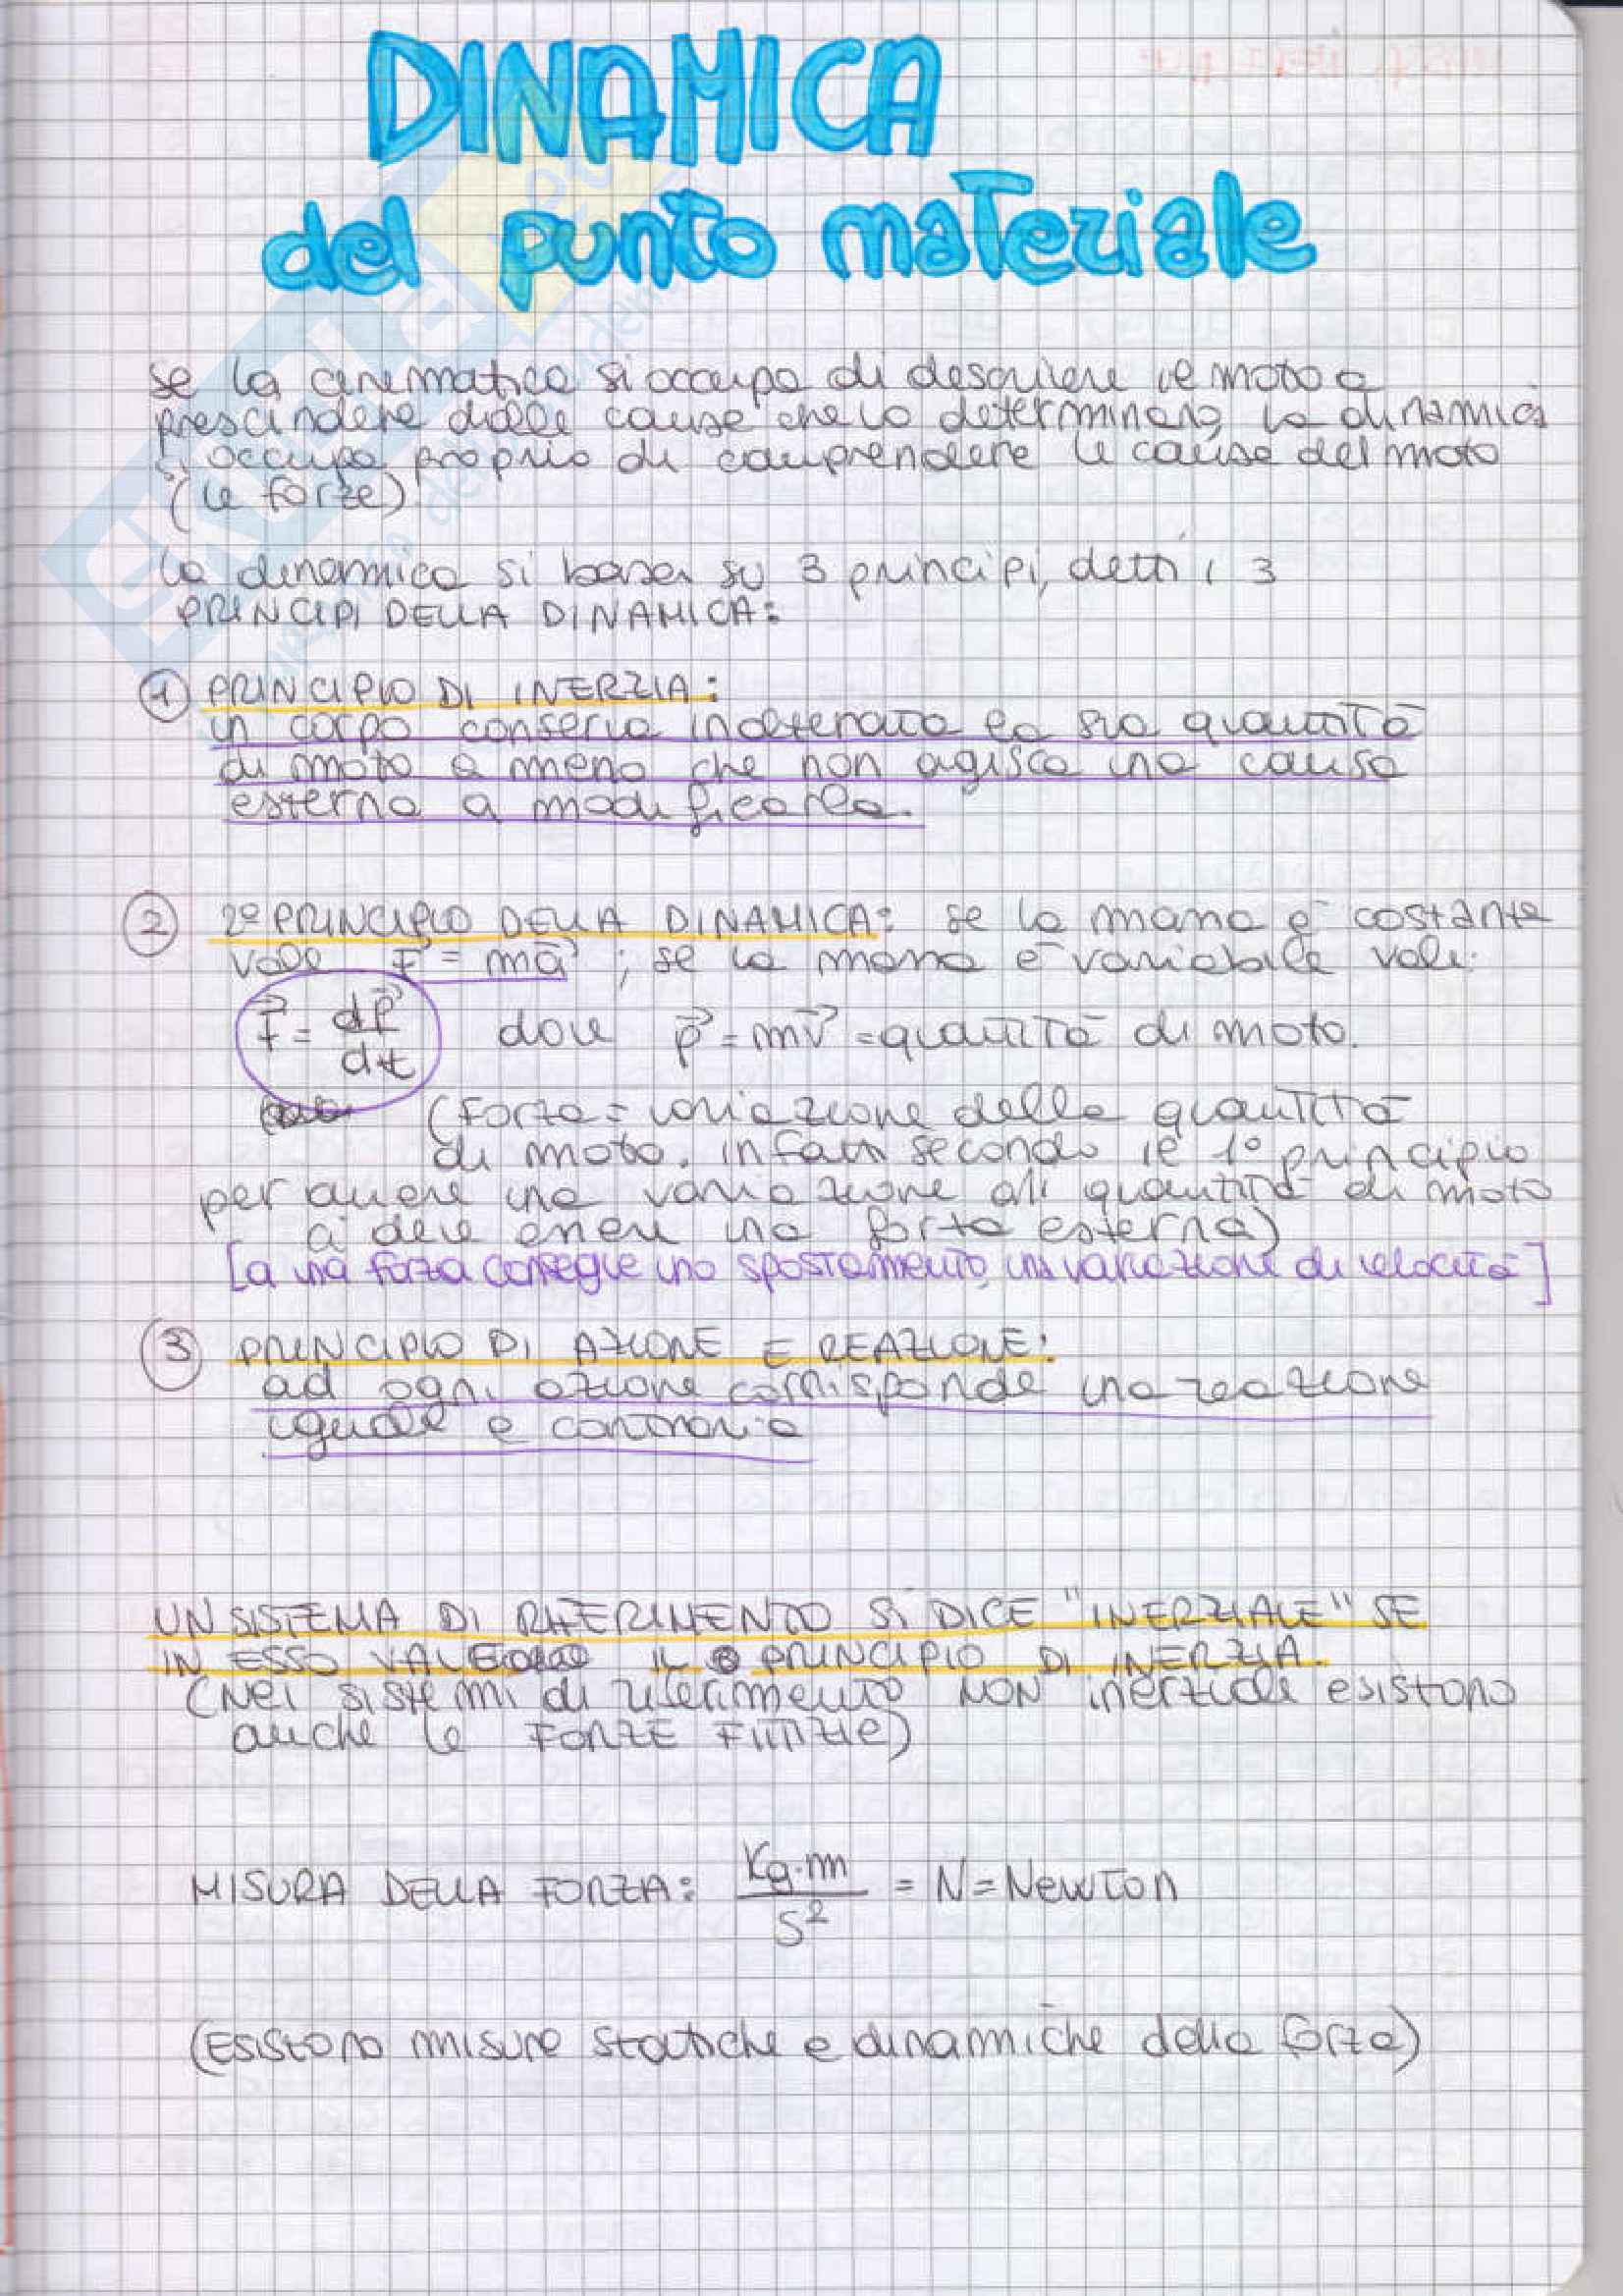 DINAMICA
del punto materiale
se la cinematica si occupa di descrivere il moto a
prescindere dalle cause che lo determinano, la dinamica
si occupa proprio di comprendere le cause del moto
(le forze)
la dinamica si basa su 3 principi, detti i 3
PRINCIPI DELLA DINAMICA:
① PRINCIPIO DI INERZIA:
un corpo conserva inalterata la sua quantità
di moto a meno che non agisca una causa
esterna a modificarla.
② 2° PRINCIPIO DELLA DINAMICA: se la massa è costante
vale F⃗ = ma⃗ ; se la massa è variabile vale:
F⃗ = dp⃗/dt dove p⃗ = mv⃗ = quantità di moto.
(Forza = variazione della quantità
di moto. infatti secondo il 1° principio
per avere una variazione di quantità di moto
ci deve essere una forza esterna)
[a una forza consegue uno spostamento, una variazione di velocità]
③ PRINCIPIO DI AZIONE E REAZIONE:
ad ogni azione corrisponde una reazione
uguale e contraria
UN SISTEMA DI RIFERIMENTO SI DICE "INERZIALE" SE
IN ESSO VALE IL PRINCIPIO DI INERZIA.
(Nei sistemi di riferimento NON inerziali esistono
anche le FORZE FITTIZIE)
MISURA DELLA FORZA: Kg·m/s² = N = Newton
(ESISTONO misure statiche e dinamiche della forza)